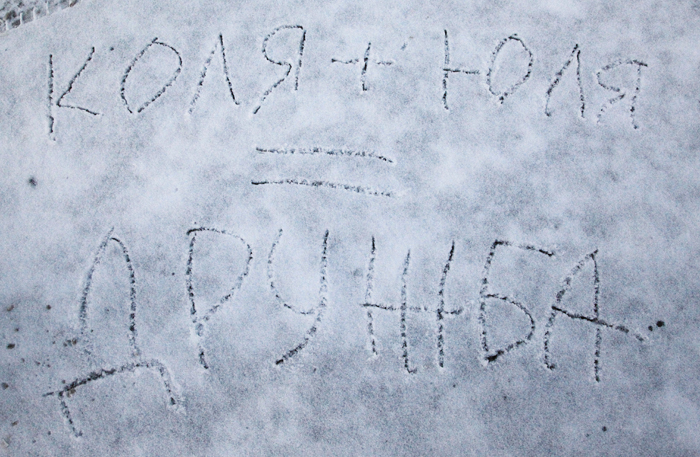 КОЛЯ + ЮЛЯ
=
ДРУЖБА